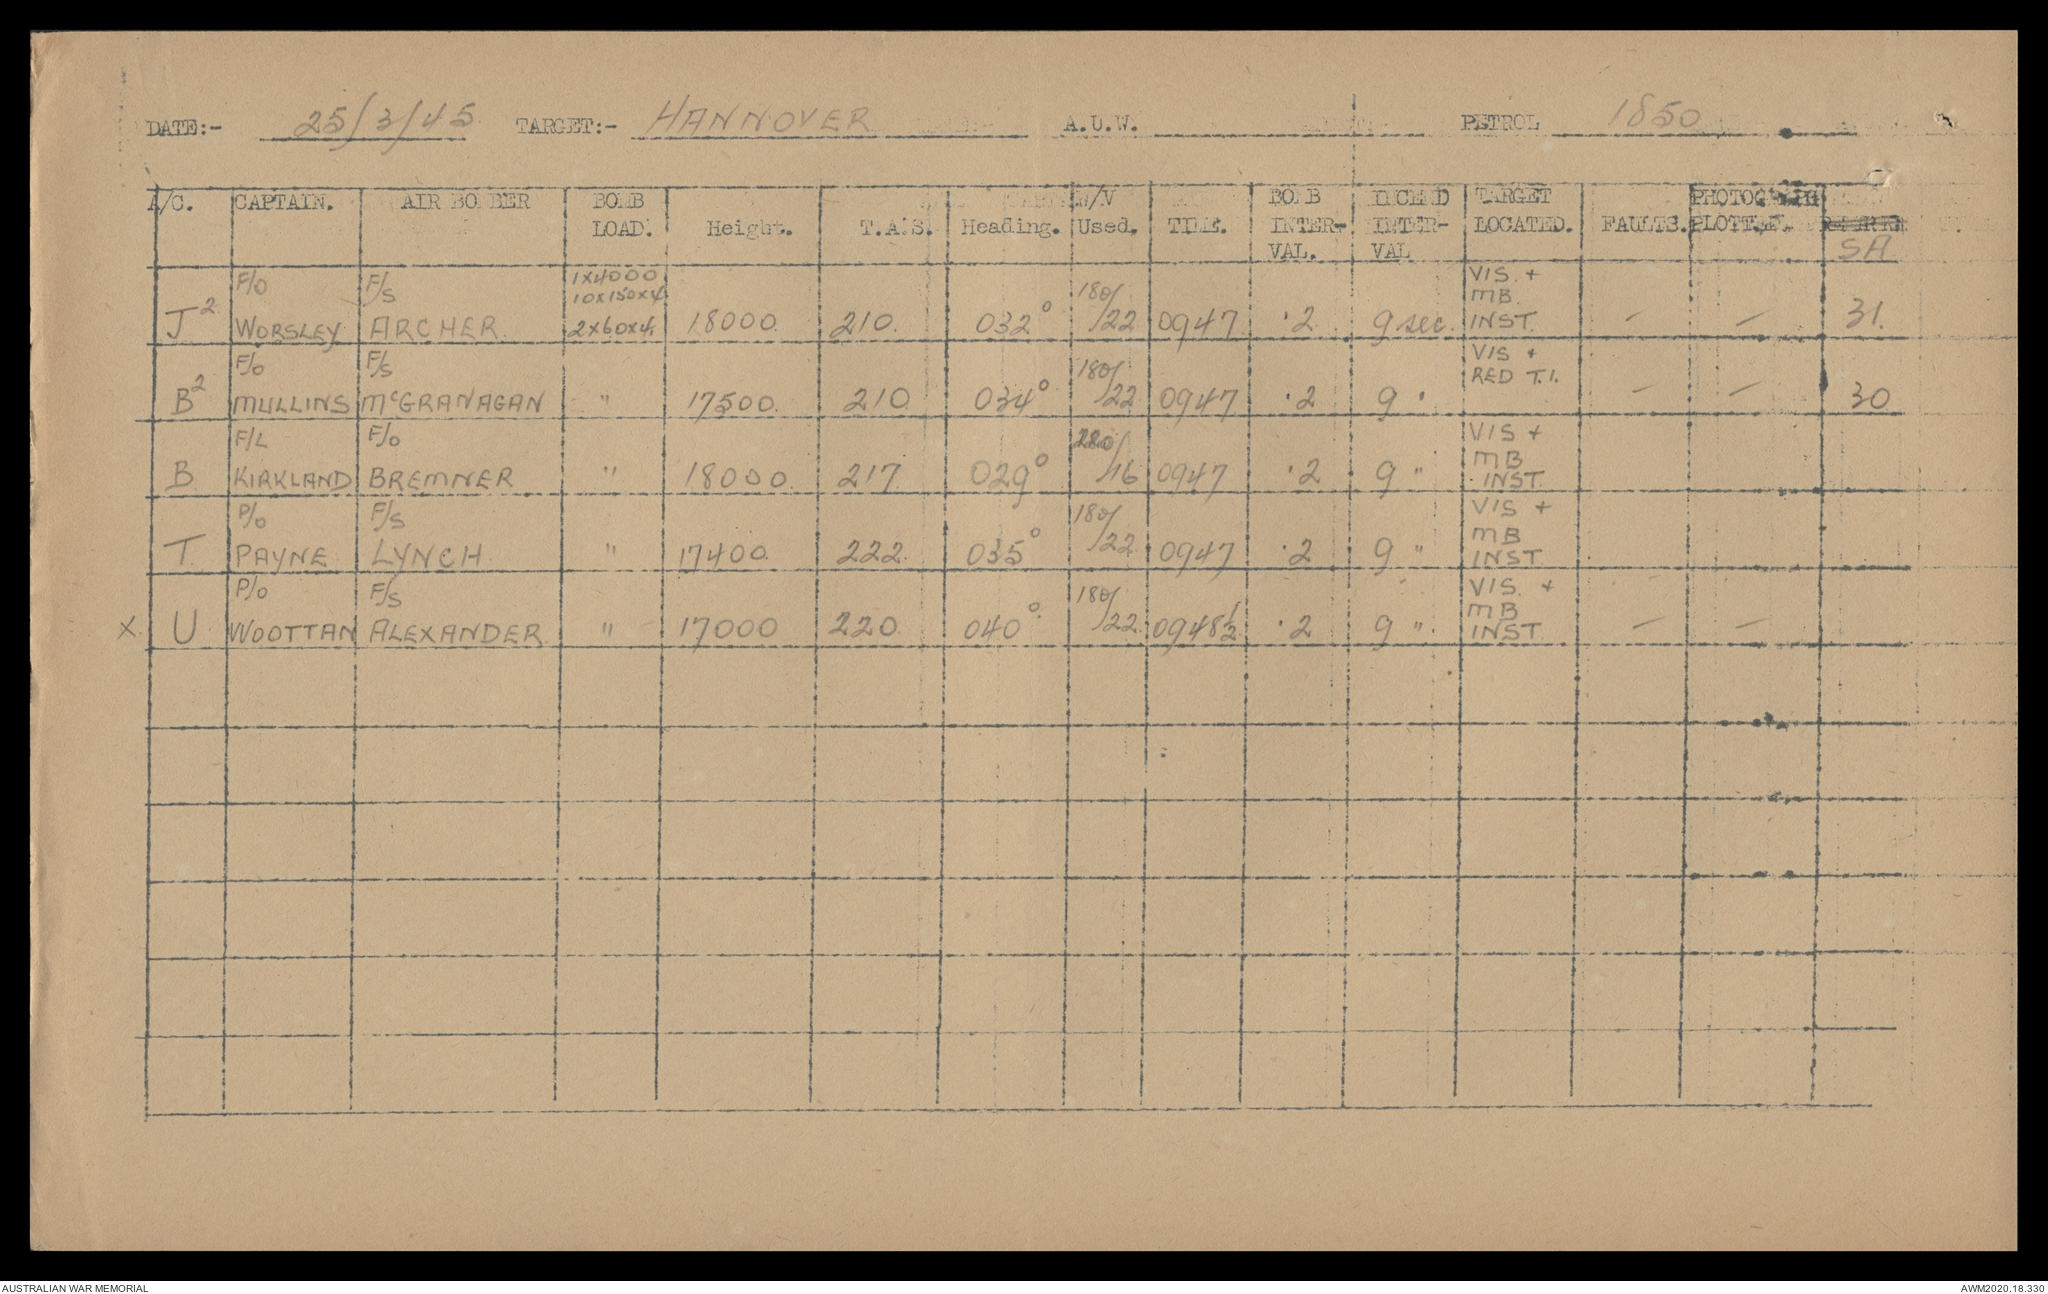 DATE:- 25/3/45 TARGET:- HANNOVER A.U.W. PETROL 1850
A/C. CAPTAIN. AIR BOMBER BOMB LOAD. Height. T.A.S. Heading. W/V Used. TIME. BOMB INTER-VAL. INCEND INTER-VAL TARGET LOCATED. FAULTS. PHOTOGRAPH PLOTTED. SA
J2 F/O WORSLEY F/S ARCHER 1x4000 10x150x4 2x60x4 18000 210 032° 180/22 0947 .2 9 sec VIS + MB. INST. – – 31.
B2 F/O MULLINS F/S McGRANAGAN " 17500 210 034° 180/22 0947 .2 9 " VIS + RED T.I. – – 30
B F/L KIRKLAND F/O BREMNER " 18000 217 029° 220/16 0947 .2 9 " VIS + MB INST.
T P/O PAYNE F/S LYNCH " 17400 222 035° 180/22 0947 .2 9 " VIS + MB INST
X U P/O WOOTTAN F/S ALEXANDER " 17000 220 040° 180/22 0948½ .2 9 " VIS. + MB INST – –
AUSTRALIAN WAR MEMORIAL AWM2020.18.330